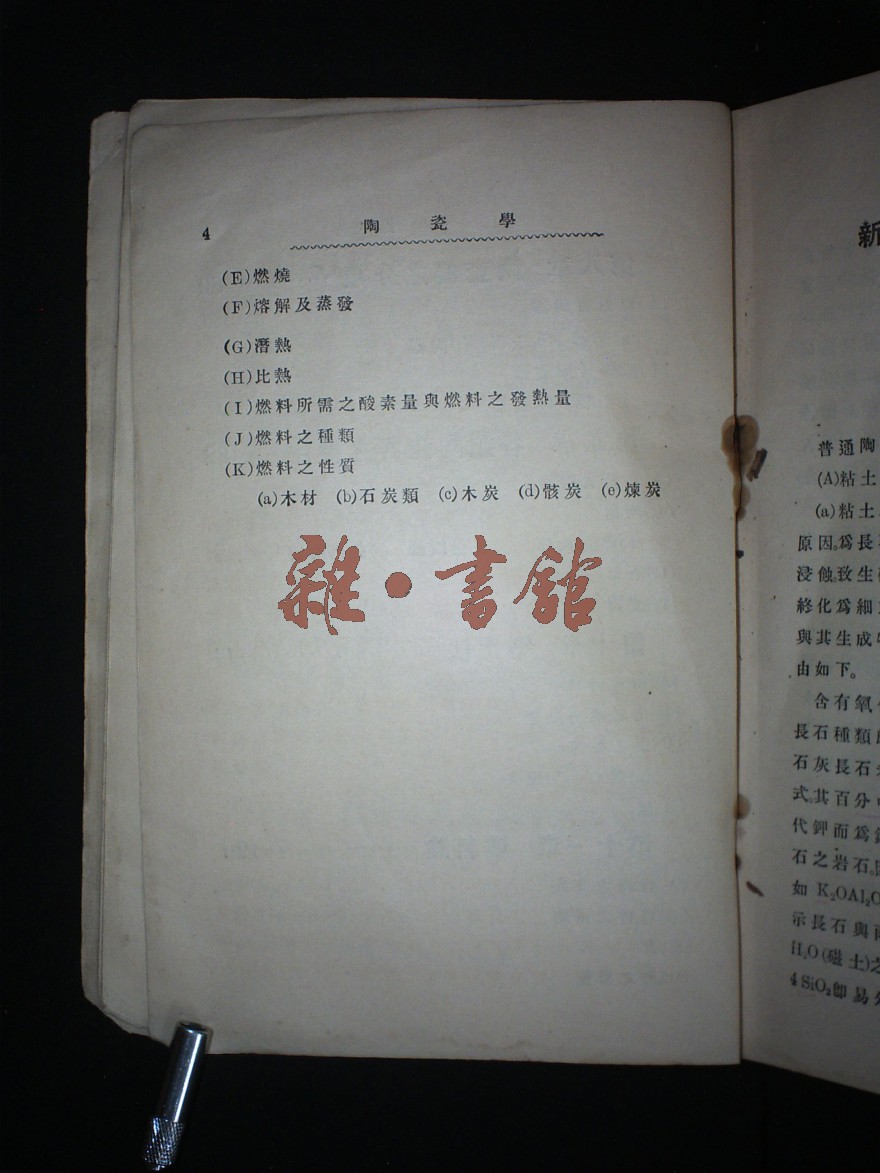 4
陶瓷學
(E)燃燒
(F)熔解及蒸發
(G)潛熱
(H)比熱
(I)燃料所需之酸素量與燃料之發熱量
(J)燃料之種類
(K)燃料之性質
(a)木材 (b)石炭類 (c)木炭 (d)骸炭 (e)煉炭
雜·書館
新
普通陶
(A)粘土
(a)粘土
原因。爲長
浸蝕。致生
終化爲細
與其生成
由如下。
含有氧
長石種類
石灰長石
式。其百分
代鉀而爲
石之岩石。
如 K₂OAl₂O
示長石與
H₂O(磁土)之
4SiO₂卽易